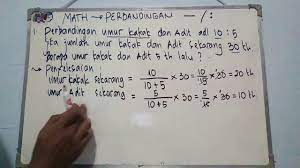 MATH → PERBANDINGAN — /:
1. Perbandingan umur kakak dan Adit adl 10 : 5
jika jumlah umur kakak dan Adit sekarang 30 th
berapa umur kakak dan Adit 5 th lalu ?
→ Penyelesaian :
umur kakak sekarang = 10/10+5 × 30 = 10/15 × 30 = 20 th
umur Adit sekarang = 5/10+5 × 30 = 5/15 × 30 = 10 th